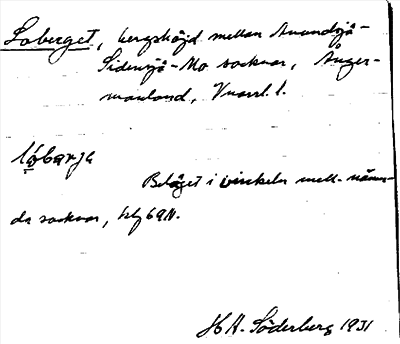 Loberget, bergshöjd mellan Anundsjö-
Sidensjö-Mo socknar, Ånger-
manland, Vnorrl. l.
lóbarja
Beläget i vinkeln mell. nämn-
da socknar,
H A. Söderberg 1931